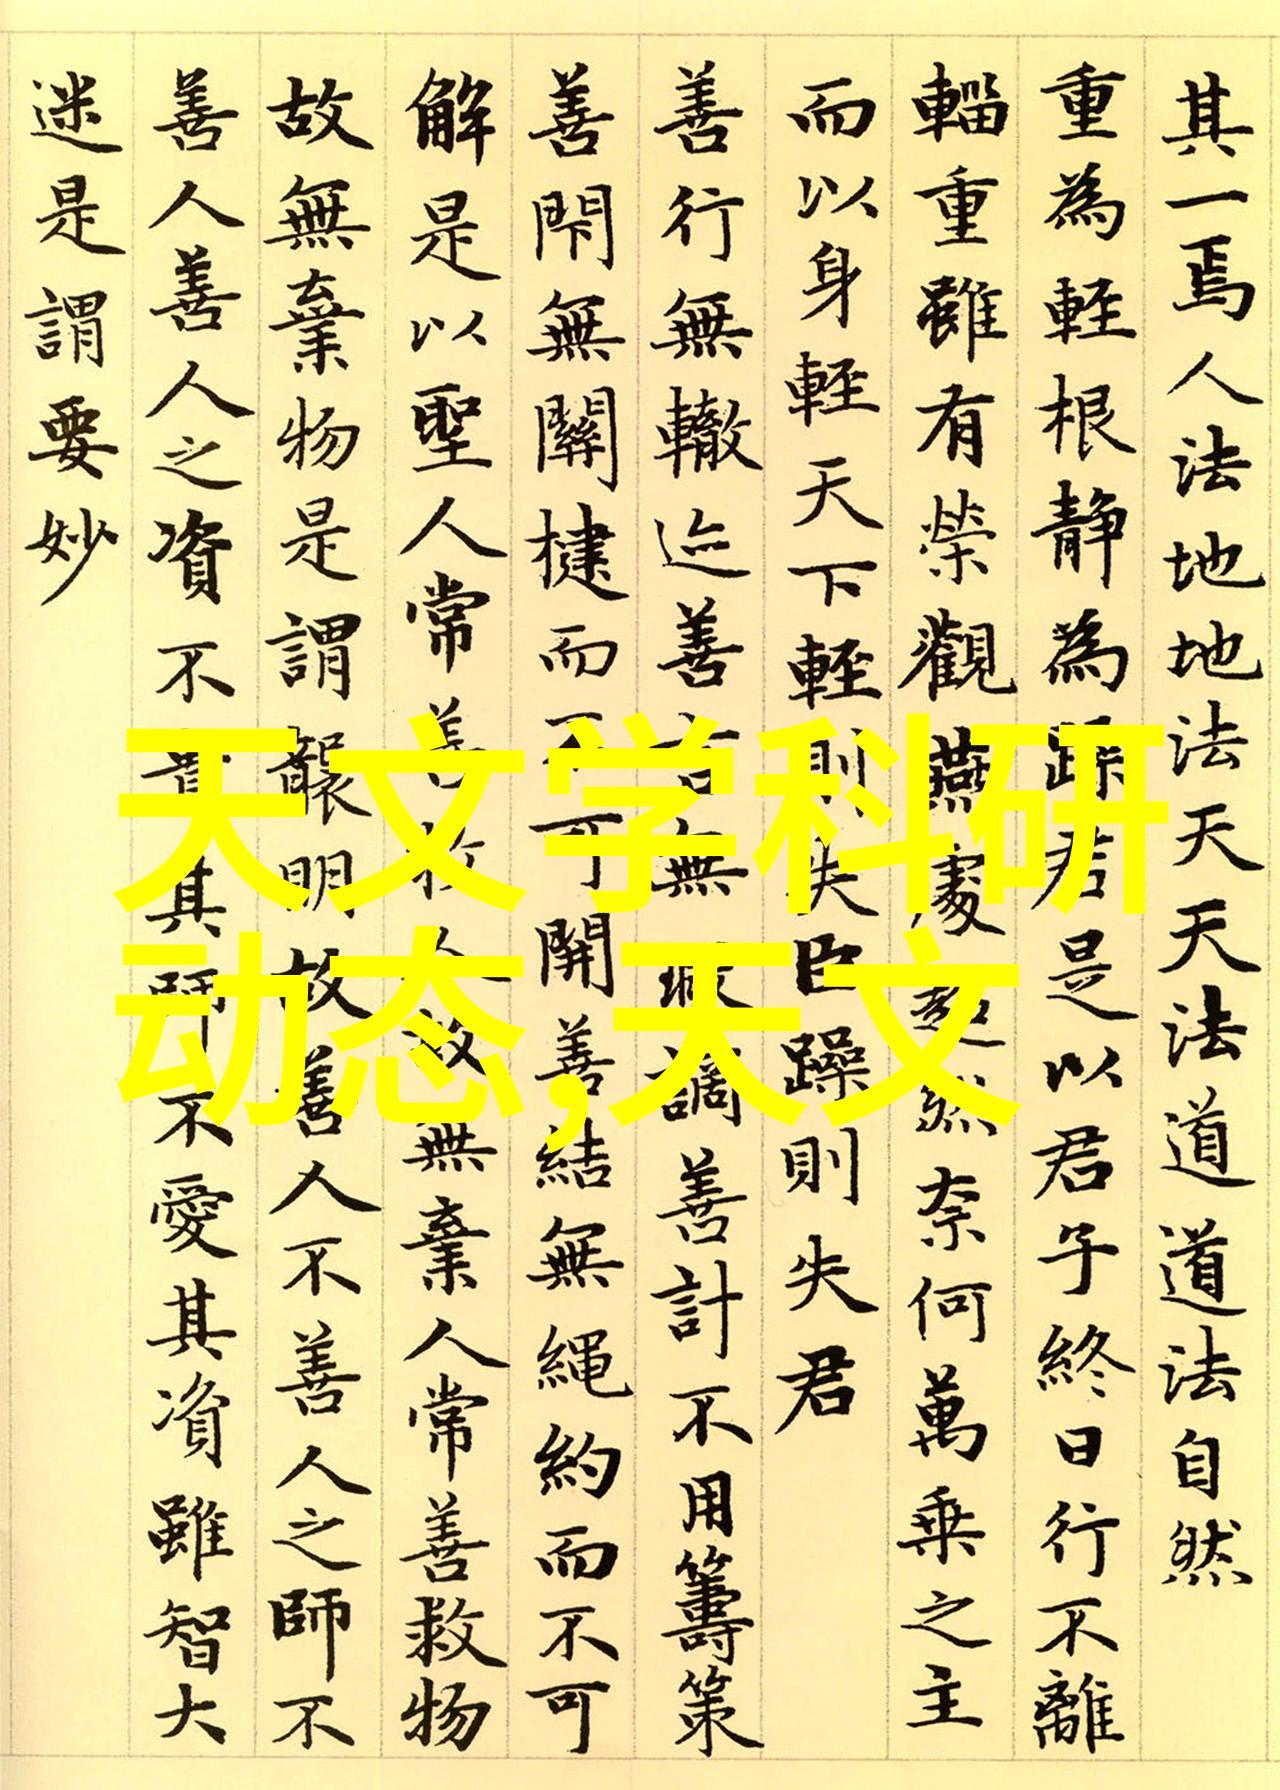 其一焉人法地地法天天法道道法自然
重為輕根靜為躁君是以君子終日行不離
輜重雖有榮觀燕處超然奈何萬乘之主
而以身輕天下輕則失臣躁則失君
善行無轍迹善言無瑕謫善計不用籌策
善閇無關楗而不可開善結無繩約而不可
解是以聖人常善救人故無棄人常善救物
故無棄物是謂襲明故善人不善人之師不
善人善人之資不貴其師不愛其資雖智大
迷是謂要妙
天文学科研
动态,天文